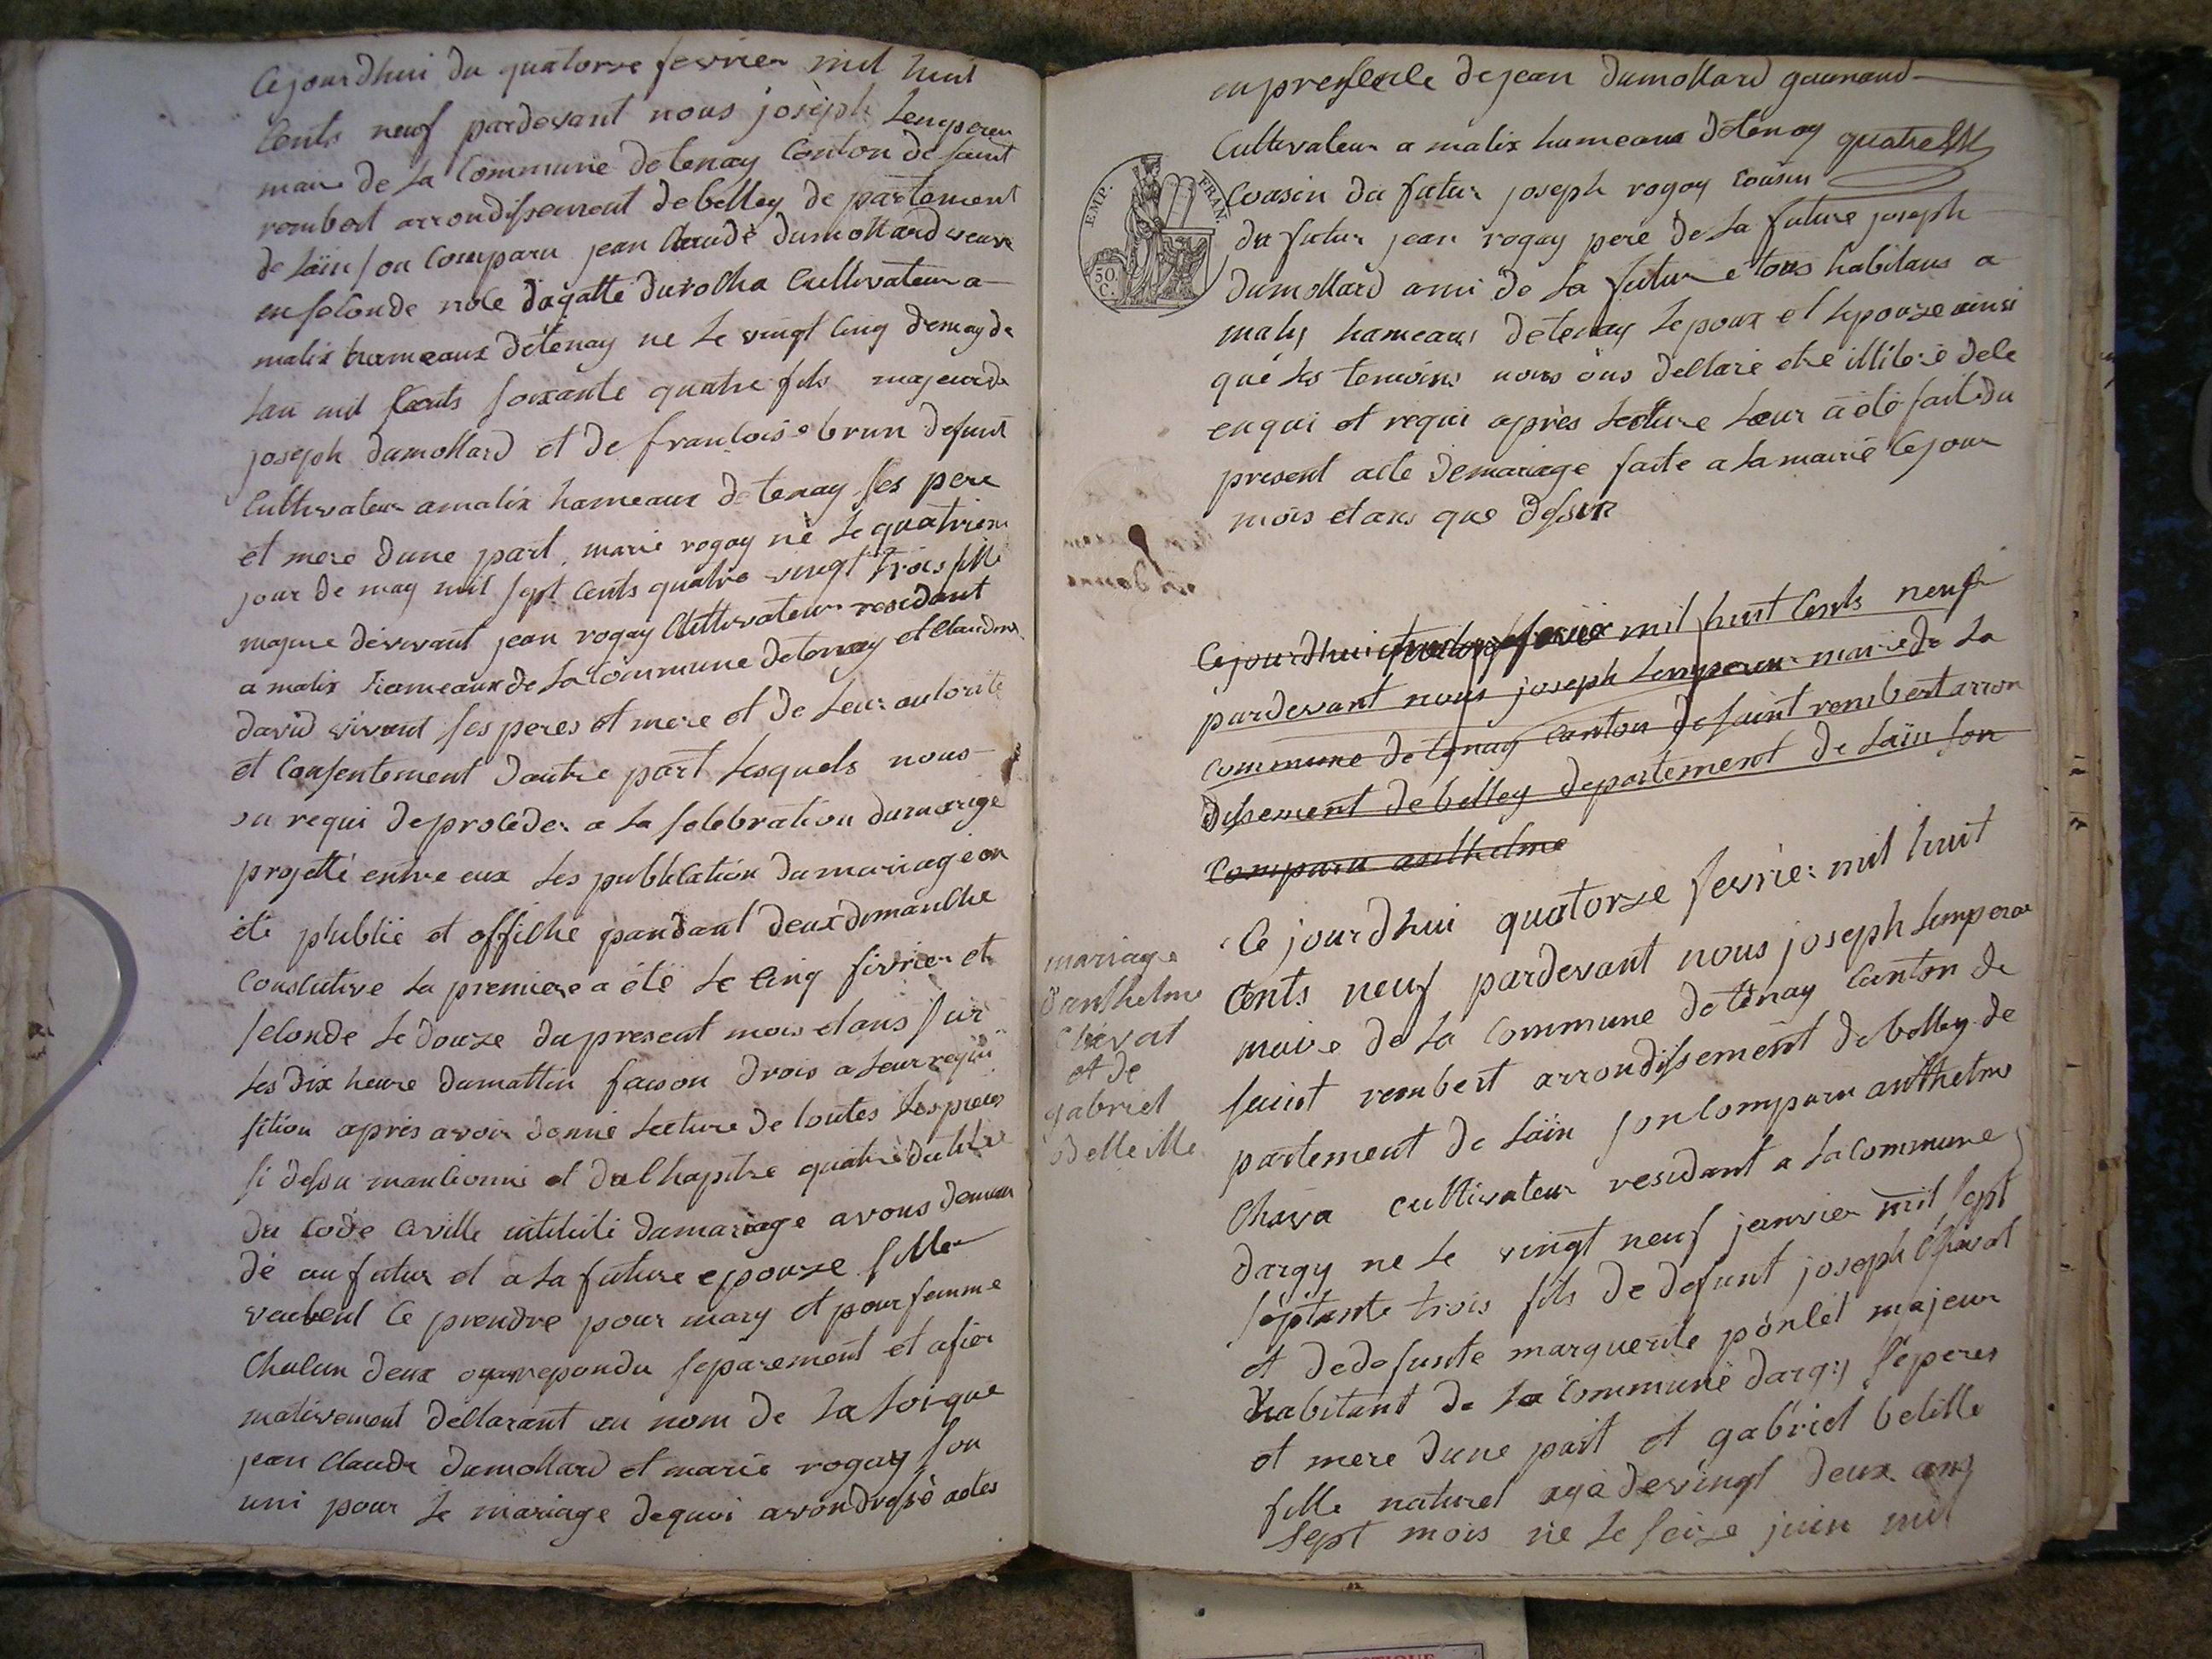 Cejourdhui du quatorze fevrier mil huit
Cents neuf pardevant nous joseph Lempereu
maire de La Commune detenay Conton de saint
rembert arrondissement debelley de partement
de Lain son Comparu jean Claude dumollard veuve
en seconde noce d'agatte durocha Cultivateur a
malix hameaux detenay ne Le vingt Cinq demay de
Lan mil scents soixante quatre fils majeur de
joseph dumollard et de francoise brun defunt
Cultivateur amalix hameaux detenay ses pere
et mere dune part, marie rogay né Le quatriem
jour de may mil sept Cents quatre vingt trois fille
majure devivant jean rogay Cultivateur residant
a malix hameaux de La Commune detenay et Claudine
david vivant ses peres et mere et de Leur autorité
et Consentement dautre part Lesquels nous
on requi deproceder a La selebration dumariage
projetté entre eux Les publication dumariage on
été publié et affiché pandant deux dimanche
Conscutive La premiere a été Le Cinq fevrier et
seconde Le douze du present mois et ans sur
Les dix heure dumattin faison drois a Leur requi
sition après avoir donné Lecture de toutes Les pieces
si dessu mantionné et du Chapitre quatre dutitre
du Code Civille intitulé dumariage avous deman
dé aufutur et a La future epouze sille
veulent Ce prendre pour mary et pour femme
Chacun deux repondu separement et afir
mativement déclarant au nom de La Loi que
jean Claude dumollard et marie rogay son
uni pour Le mariage dequoi avon dressé actes
en presence dejean dumollard gounand
Cultivateur a malix hameaux detenay
Cousin du futur joseph rogay Cousin
du futur jean rogay pere de La future joseph
dumollard ami de La future tous habitans a
malix hameaux detenay Lepoux et Lepouze ainsi
que Les temoins nous ons declaré etre illiteré dele
enqui et requi après Lecture Leur a été fait du
present acte demariage faite a La mairie Cejour
mois et ans que dessur
EMP. FRAN.
50 C.
Cejourdhui fevrier mil huit Cents neuf
pardevant nous joseph Lempereur maire de La
Commune detenay Canton de saint rembert arron
dissement debelley departement de Lain son
Comparu anthelme
mariage
danthelme
Chavat
et de
gabriel
delleille
Ce jourdhui quatorze fevrier mil huit
Cents neuf pardevant nous joseph Lempereur
maire de La Commune detenay Canton de
saint rembert arrondissement de belley de
partement de Lain son Comparu anthelme
Chava cultivateur residant a La Commune
dargy ne Le vingt neuf janvier mil sept
septante trois fils de defunt joseph Chavat
et dedefunte marguerite poncet majeur
habitant de La Commune dargy se peres
et mere dune part et gabriel belille
fille naturel agé devingt deux ans
sept mois né Le seize juin mil